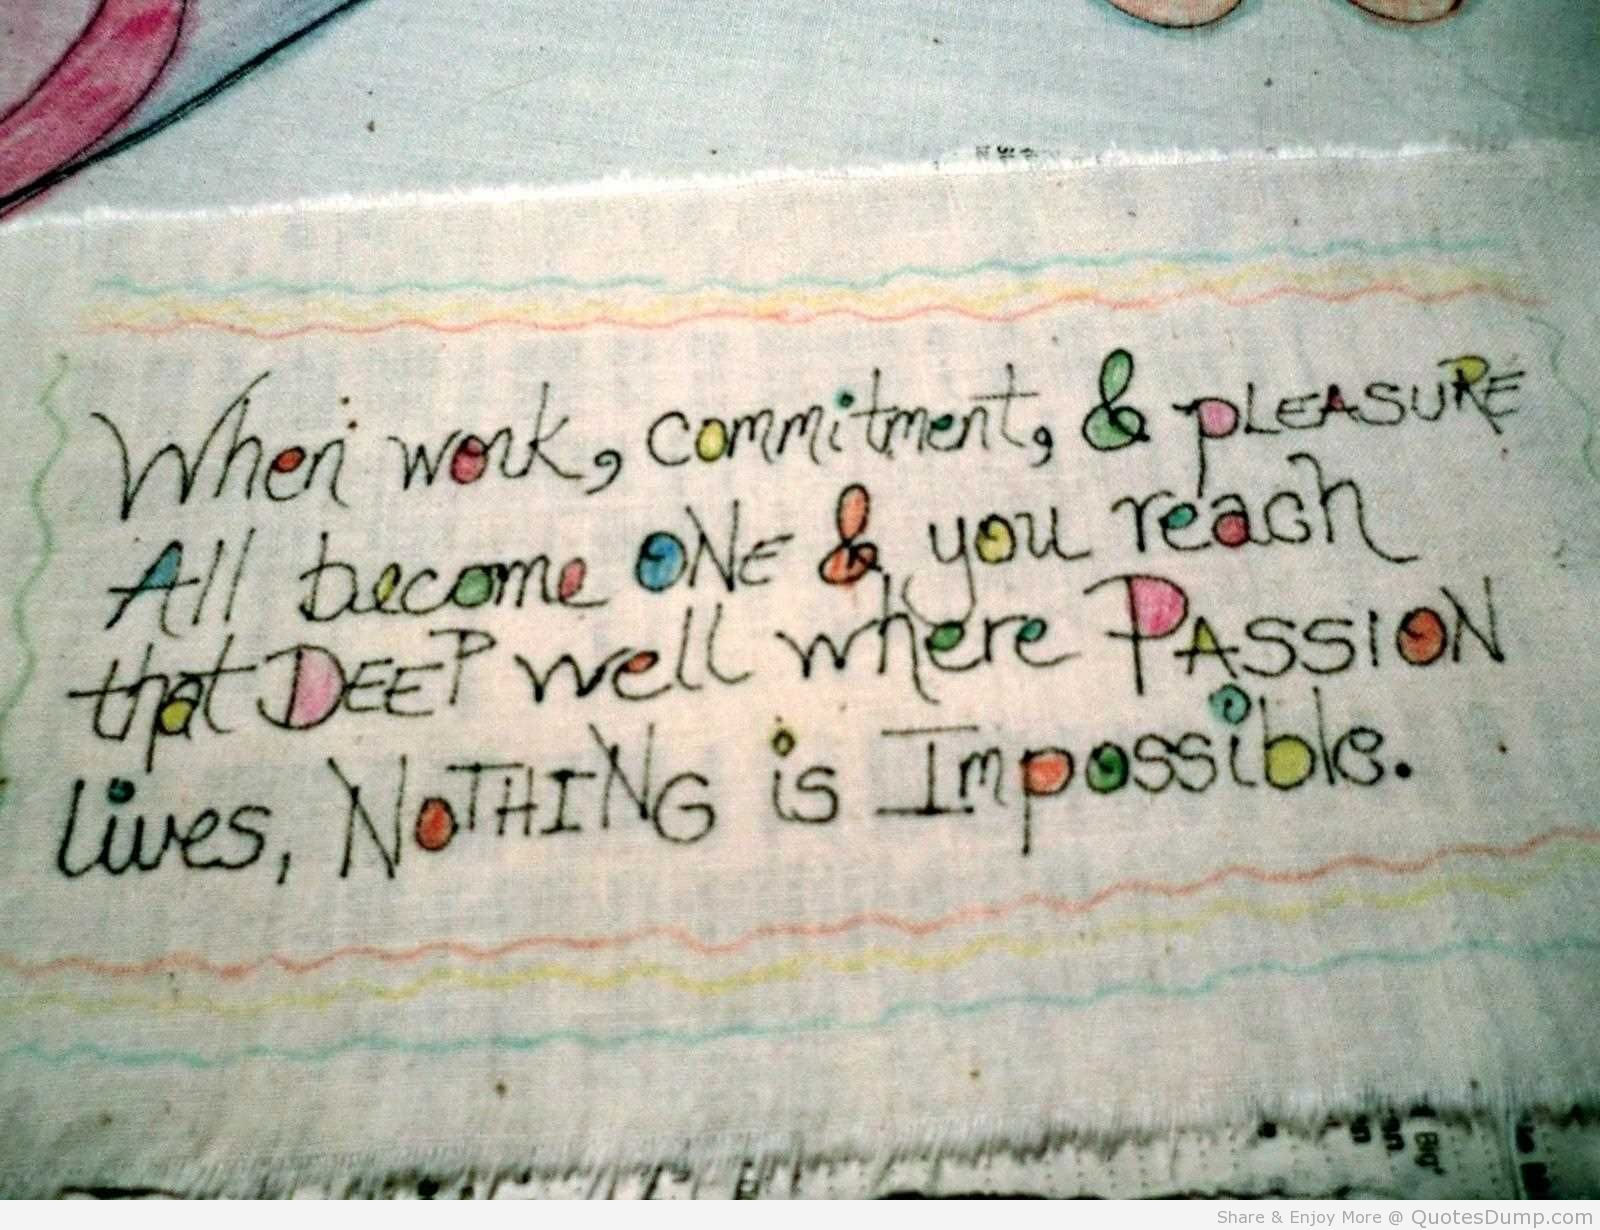 When work, commitment, & pLEASURE
All become ONE & you reach
that DEEP well where PASSION
lives, NOTHING is Impossible.
Share & Enjoy More @ QuotesDump.com